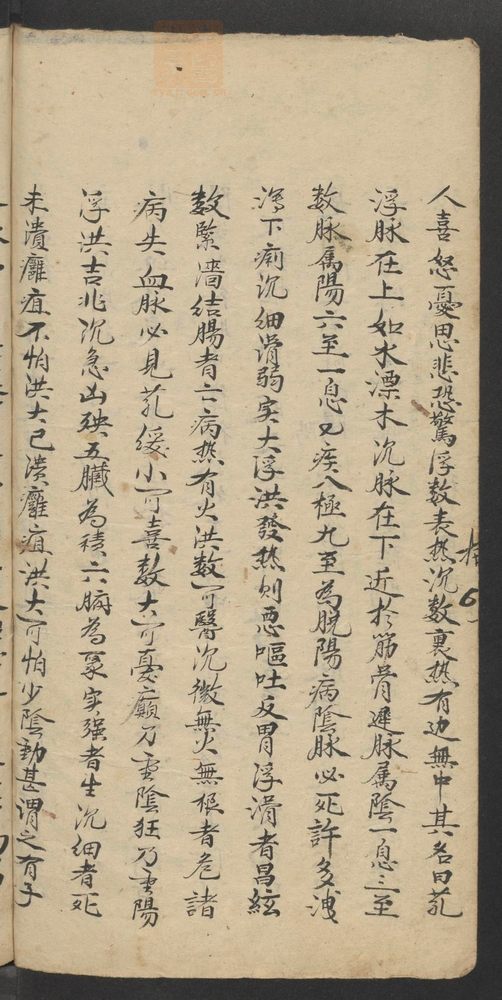 人喜怒憂思悲恐驚浮数表热沉数裏热有边無中其名曰芤
浮脉在上如水漂木沉脉在下近於筋骨遲脉属陰一息三至
数脉属陽六至一息又疾八極九至為脱陽病陰脉必死許多洩
瀉下痢沉细滑弱实大浮洪發热則悪嘔吐反胃浮滑者昌絃
数緊濇结腸者亡病热有火洪数可醫沉微無火無根者危諸
病失血脉必見芤緩小可喜数大可憂癲乃重陰狂乃重陽
浮洪吉兆沉急凶殃五臓為積六腑為聚实强者生沉细者死
未潰癰疽不怕洪大已潰癰疽洪大可怕少陰動甚謂之有子